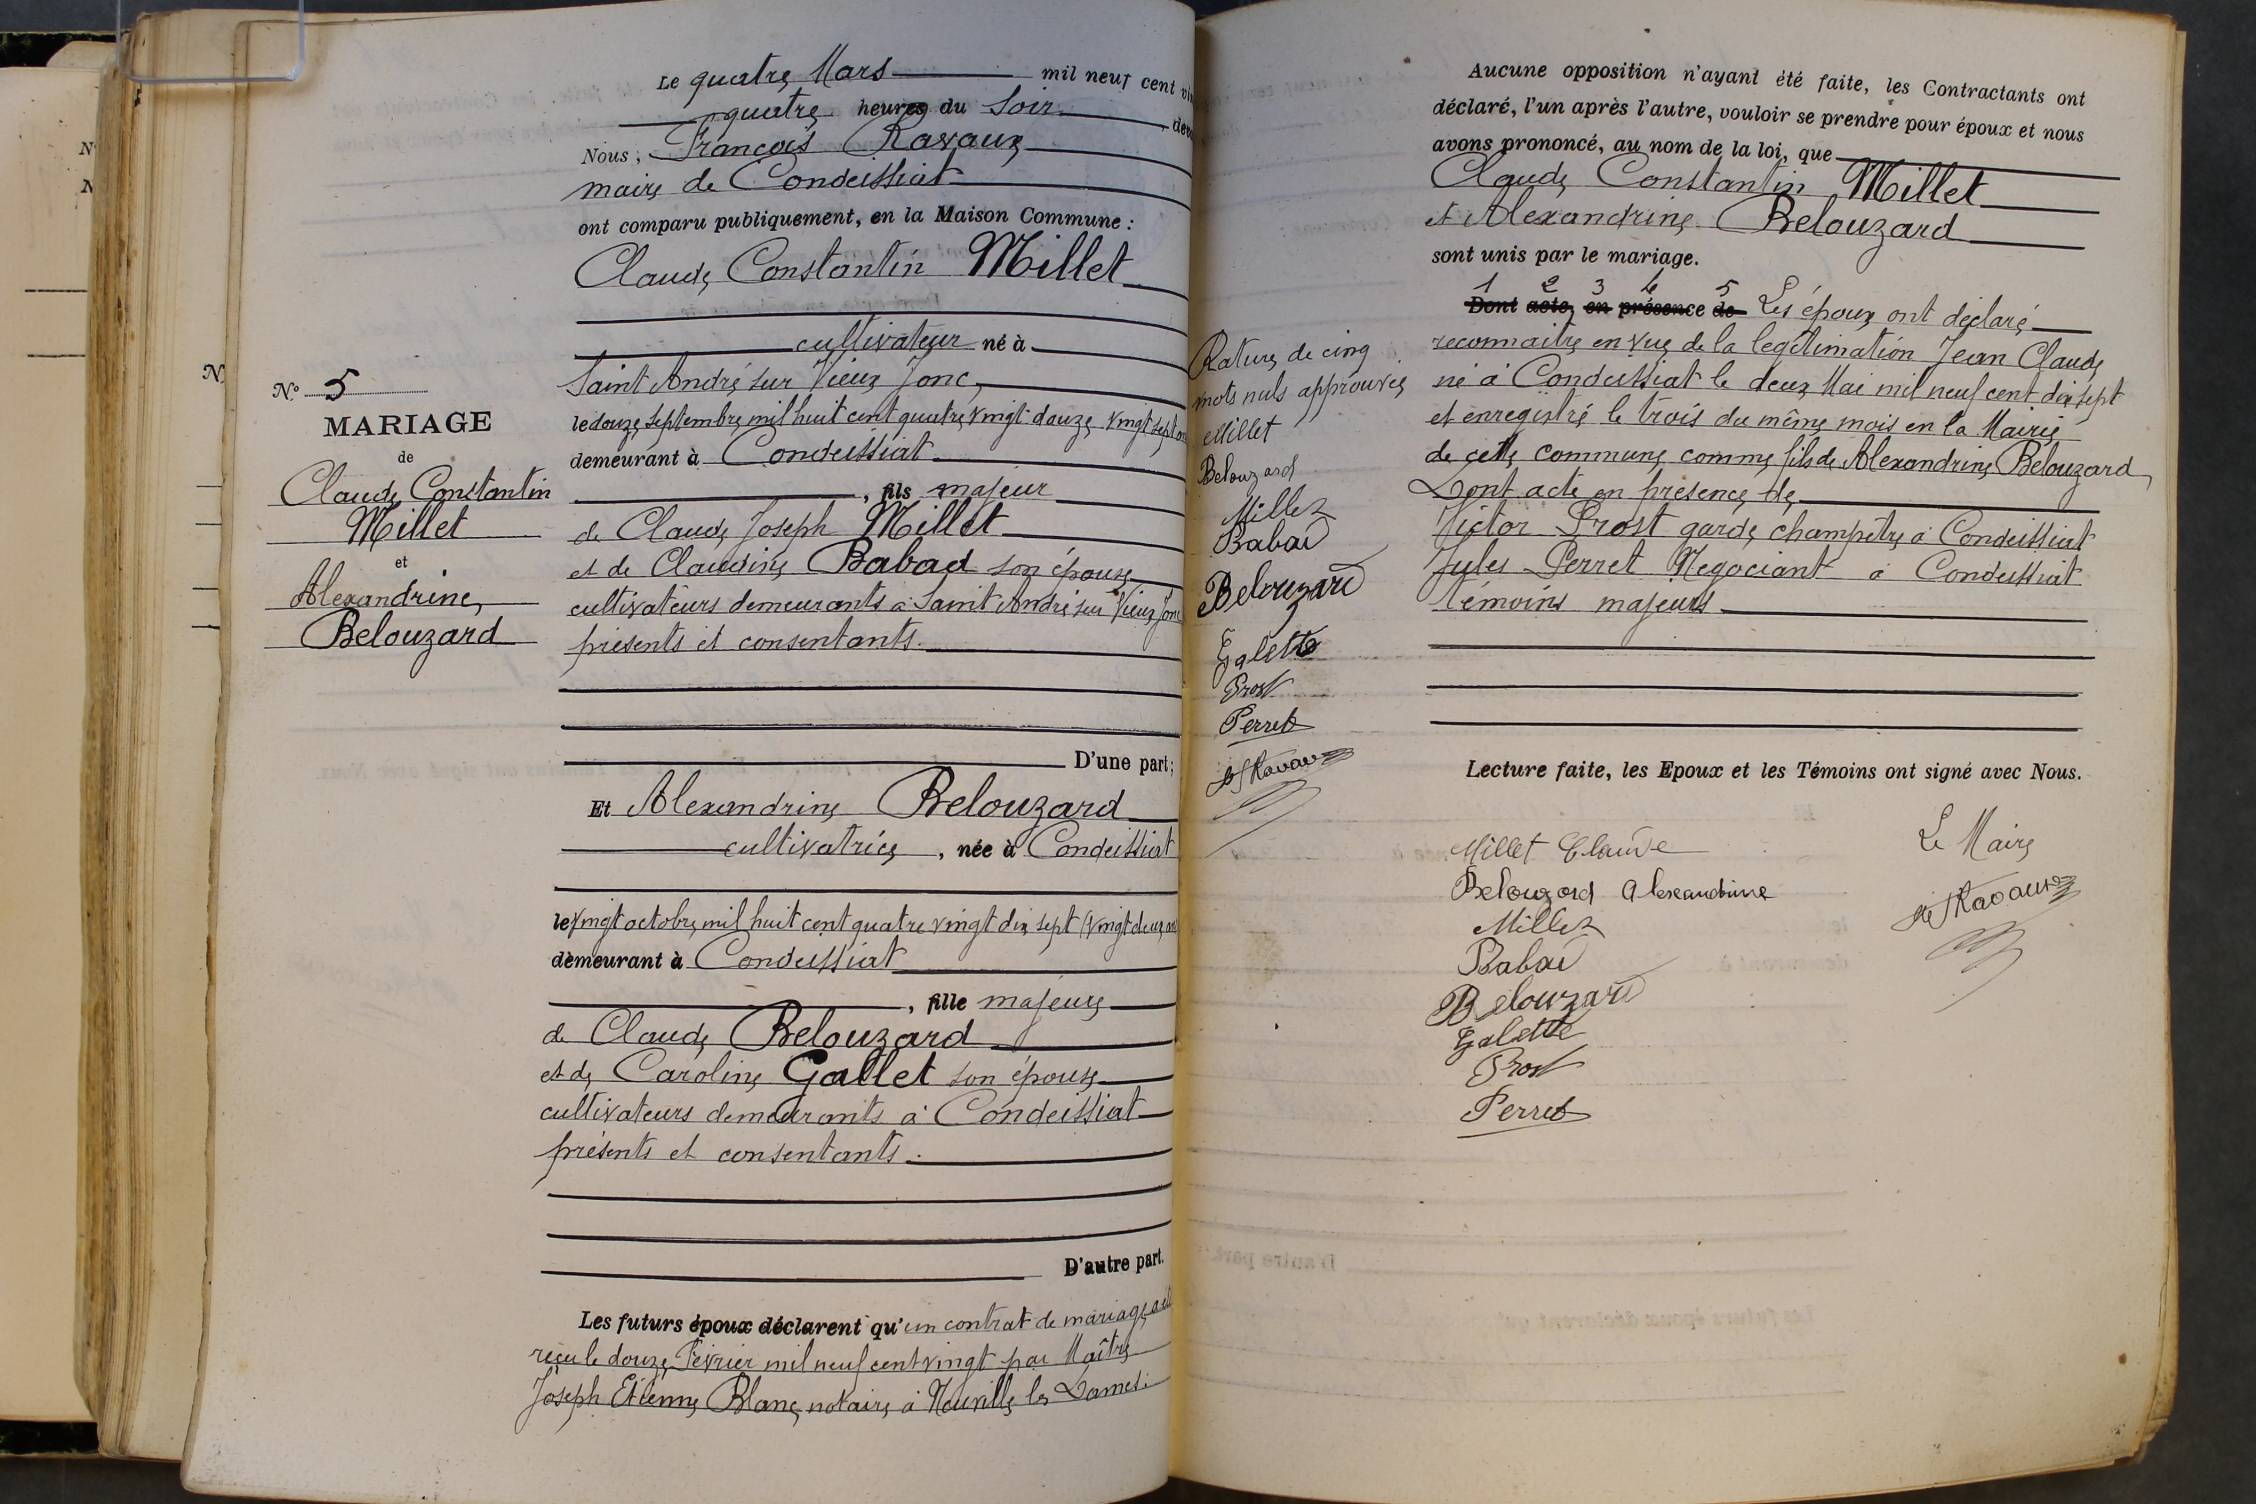 N°
N
N.
N° 5
MARIAGE
de
Claude Constantin
Millet
et
Alexandrine
Belouzard
Le quatre Mars mil neuf cent
quatre heures du Soir
Nous, François Ravaux
maire de Condeissiat
ont comparu publiquement, en la Maison Commune :
Claude Constantin Millet
cultivateur né à
Saint André sur Vieux Jonc,
le douze septembre mil huit cent quatre vingt douze vingt sept
demeurant à Condeissiat
, fils majeur
de Claude Joseph Millet
et de Claudine Babad son épouse
cultivateurs demeurants à Saint André sur Vieux Jonc
presents et consentants.
D'une part ;
Et Alexandrine Belouzard
cultivatrice , née à Condeissiat
le vingt octobre mil huit cent quatre vingt dix sept (vingt deux ans
demeurant à Condeissiat
, fille majeure
de Claude Belouzard
et de Caroline Gallet son épouse
cultivateurs demeurants à Condeissiat
présents et consentants.
D'autre part.
Les futurs époux déclarent qu'un contrat de mariage
reçu le douze Février mil neuf cent vingt par Maître
Joseph Etienne Blanc, notaire à Neuville les Dames.
Aucune opposition n'ayant été faite, les Contractants ont
déclaré, l'un après l'autre, vouloir se prendre pour époux et nous
avons prononcé, au nom de la loi, que
Claude Constantin Millet
et Alexandrine Belouzard
sont unis par le mariage.
1 2 3 4 5
Dont acte, en présence de Les époux ont déclaré
reconnaitre en vue de la legitimation Jean Claude
né à Condeissiat le deux Mai mil neuf cent dix sept
et enregistré le trois du même mois en la Mairie
de cette commune comme fils de Alexandrine Belouzard
Dont acte en présence de
Victor Prost garde champêtre à Condeissiat
Jules Perret Negociant à Condeissiat
témoins majeurs
Rature de cinq
mots nuls approuvée
Millet
Belouzard
Millet
Babad
Belouzard
Galette
Prost
Perret
Ravaux
Lecture faite, les Epoux et les Témoins ont signé avec Nous.
Millet Claude
Belouzard Alexandrine
Millet
Babad
Belouzard
Galette
Prost
Perret
Le Maire
Ravaux